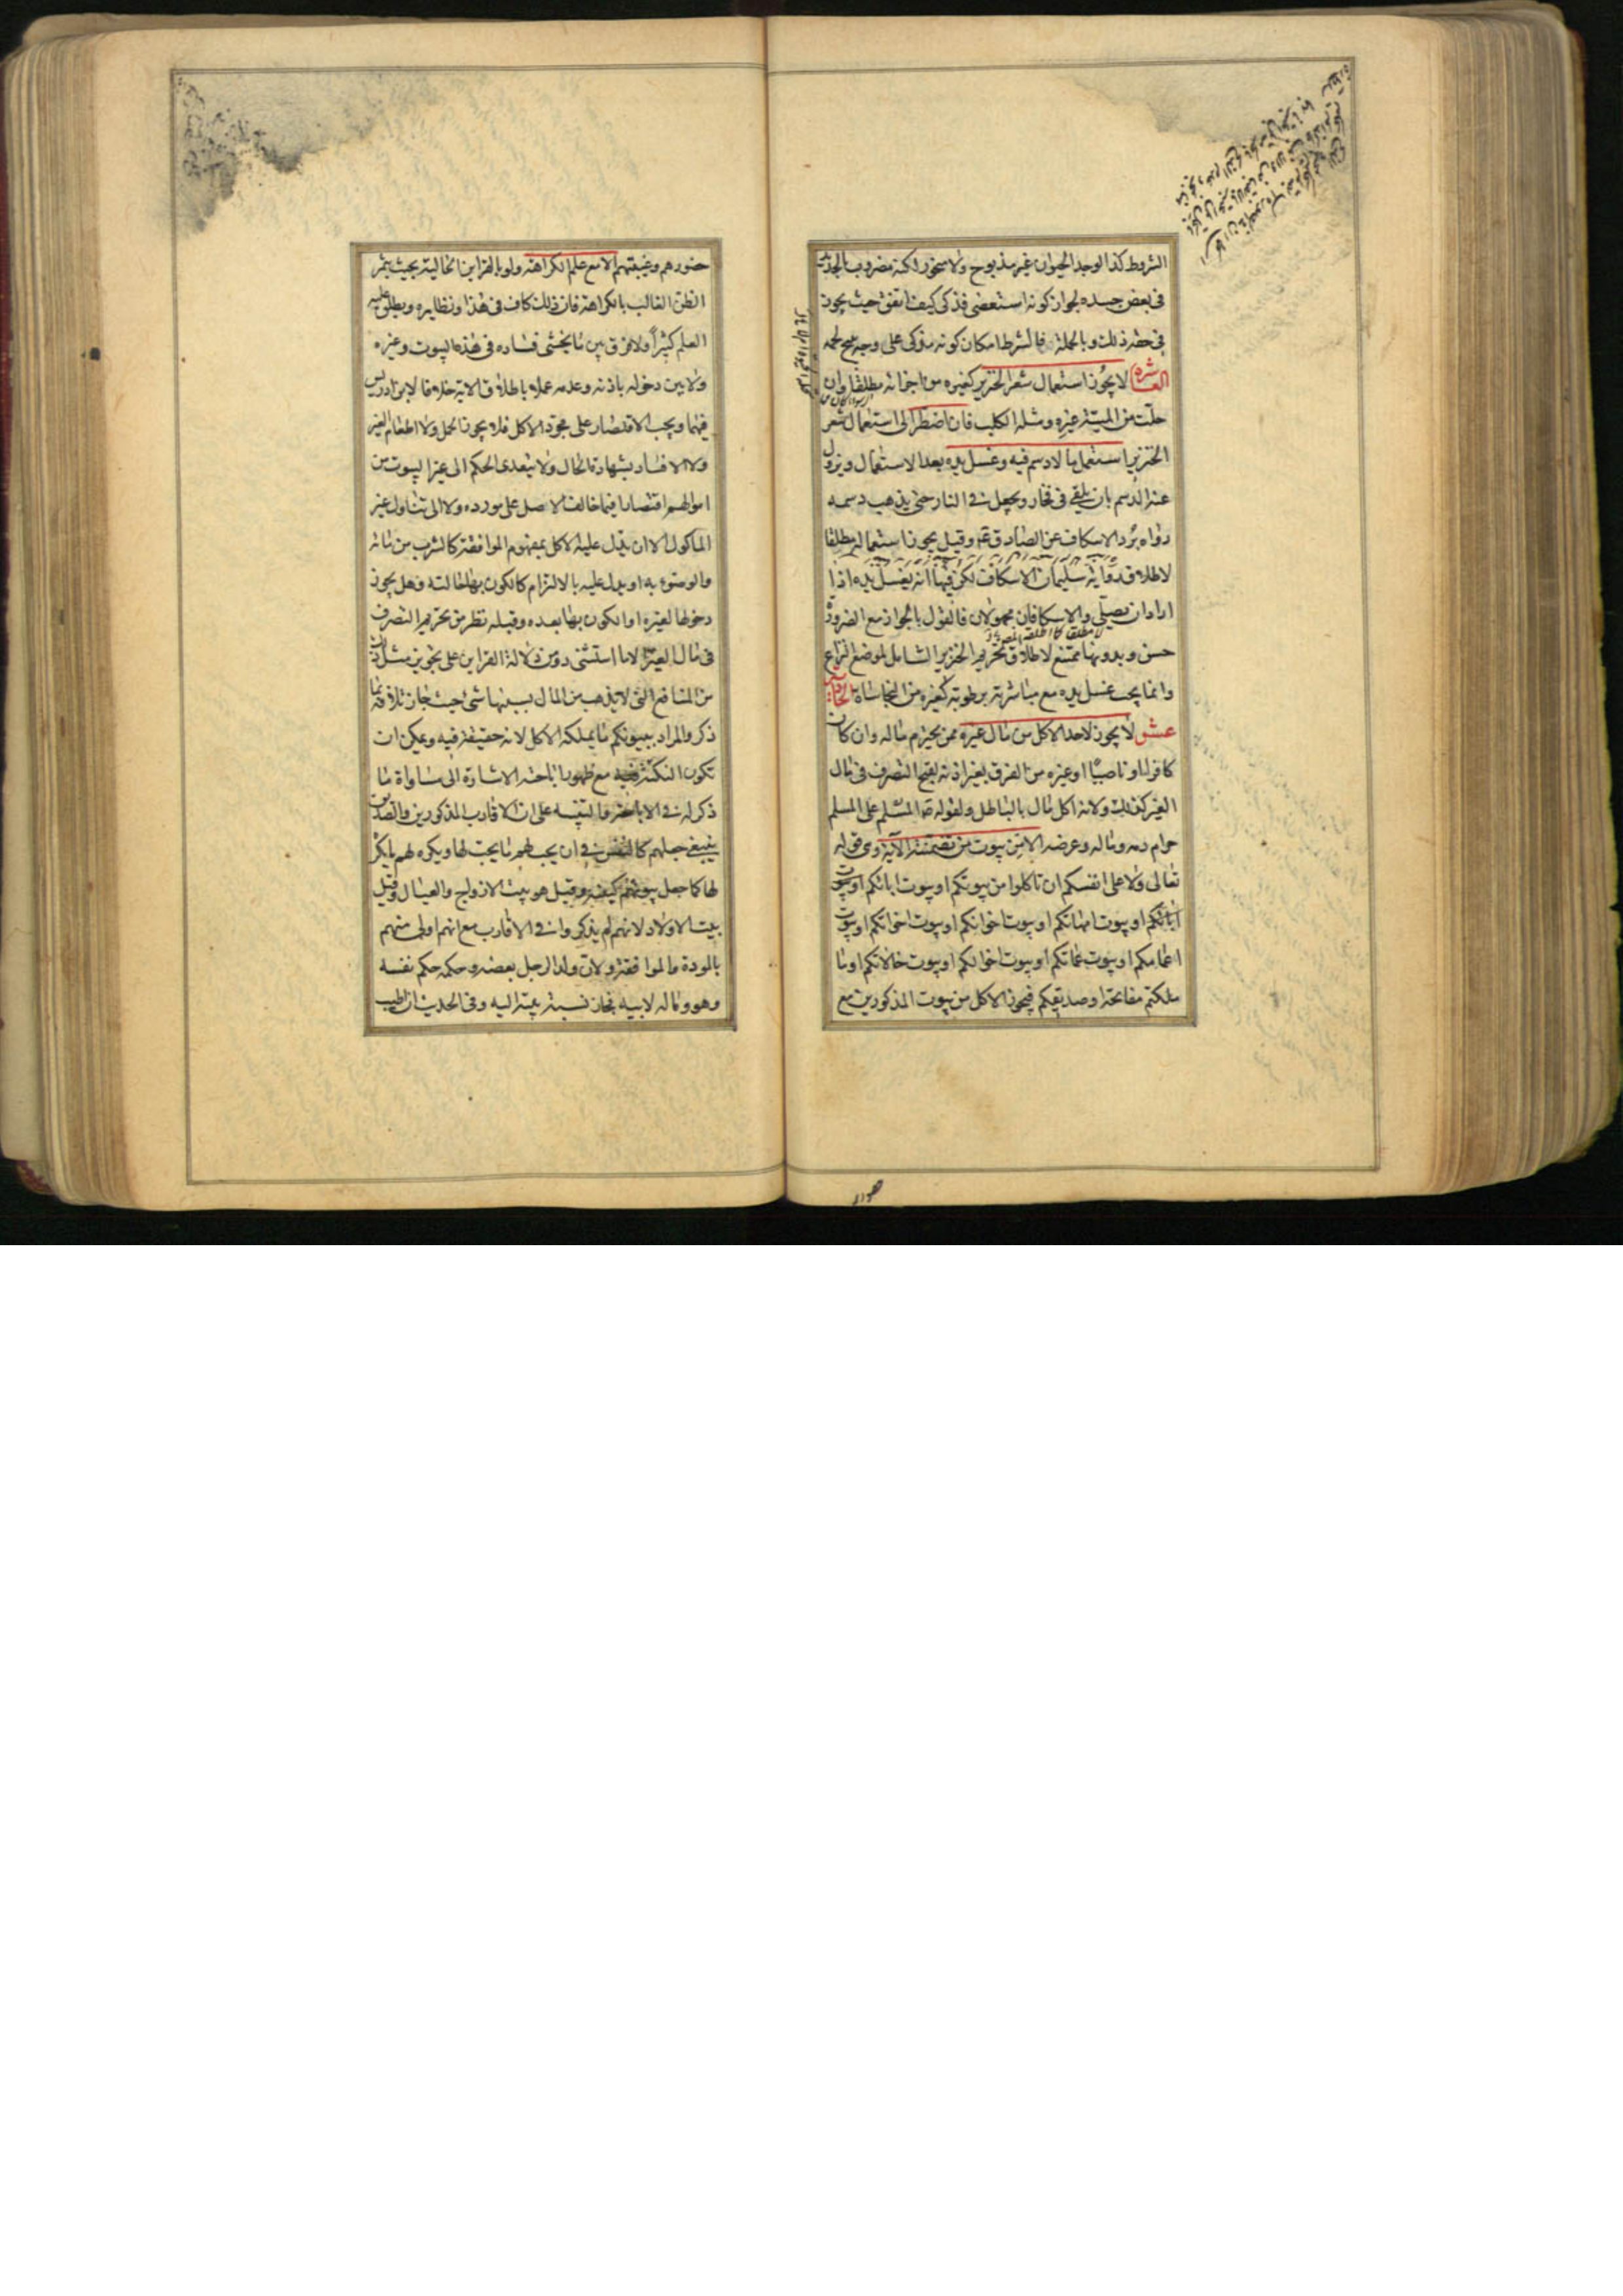 الشروط كذا لو وجد الحيوان غير مذبوح ولا منحور لكنه مضروب بالحديد
فى بعض جسده لجواز كونه استعصى فذكى كيف اتفق حيث يجوز
فى حقه ذلك وبالجملة فالشرط امكان كونه مذكى على وجه يبيح لحمه
العاشرة لا يجوز استعمال شعر الخنزير كغيره من اجزائه مطلقا وان
حلت من الميتة غيره ومثله الكلب فان اضطر الى استعمال شعر
الخنزير استعمل ما لا دسم فيه وغسل يده بعد الاستعمال ويزول
عنه الدسم بان يلقى فى فخار ويجعل فى النار حتى يذهب دسمه
رواه برد الاسكاف عن الصادق ع وقيل يجوز استعماله مطلقا
لاطلاق رواية سليمان الاسكاف لكن فيها انه يغسل يده اذا
اراد ان يصلى والاسكافان مجهولان فالقول بالجواز مع الضرورة
حسن وبدونها ممتنع لاطلاق تحريم الخنزير الشامل لموضع النزاع
وانما يجب غسل يده مع مباشرته برطوبة كغيره من النجاسات الحادية
عشر لا يجوز لاحد الاكل من مال غيره ممن يحترم ماله وان كان
كافرا او ناصبيا او غيره من الفرق بغير اذنه لقبح التصرف فى مال
الغير كذلك ولانه اكل مال بالباطل ولقوله ص المسلم على المسلم
حرام دمه وماله وعرضه الا من بيوت من تضمنته الآية وهى قوله
تعالى ولا على انفسكم ان تاكلوا من بيوتكم او بيوت ابائكم او بيوت
امهاتكم او بيوت اخوانكم او بيوت اخواتكم او بيوت
اعمامكم او بيوت عماتكم او بيوت اخوالكم او بيوت خالاتكم او ما
ملكتم مفاتحه او صديقكم فيجوز الاكل من بيوت المذكورين مع
حضورهم وغيبتهم الا مع علم الكراهة ولو بالقراين الحالية بحيث يثمر
الظن الغالب بالكراهة فان ذلك كاف فى هذا ونظايره ويطلق عليه
العلم كثيرا ولا فرق بين ما يخشى فساده فى هذه البيوت وغيره
ولا بين دخوله باذنه وعدمه عملا باطلاق الاية خلافا لابن ادريس
فيهما ويجب الاقتصار على مجرد الاكل فلا يجوز الحمل ولا اطعام الغير
ولا الافساد بشهادة الحال ولا يتعدى الحكم الى غير البيوت من
اموالهم اقتصارا فيما خالف الاصل على مورده ولا الى تناول غير
الماكول الا ان يدل عليه الاكل بمفهوم الموافقة كالشرب من مائه
والوضوء به او يدل عليه بالالتزام كالكون بها حالته وهل يجوز
دخولها لغيره او الكون بها بعده وقبله نظر من تحريم التصرف
فى مال الغير الا ما استثنى ومن دلالة القراين على تجويز مثل ذلك
من المنافع التى لا يذهب من المال بسببها شئ حيث جاز اتلافه بما
ذكر والمراد ببيوتكم ما يملكه الاكل لانه حقيقة فيه ويمكن ان
تكون النكتة فيه مع ظهور اباحته الاشارة الى مساواة ما
ذكر له فى الاباحة والتنبيه على ان الاقارب المذكورين والصديق
ينبغى جعلهم كالنفس فى ان يحب لهم ما يحب لها ويكره لهم ما يكره
لها كما جعل بيوتهم كبيته وقيل هو بيت الازواج والعيال وقيل
بيت الاولاد لانهم لم يذكروا فى الاقارب مع انهم اولى منهم
بالمودة والموافقة ولان ولد الرجل بعضه وحكمه حكم نفسه
وهو وماله لابيه فجاز نسبة بيته اليه وفى الحديث ان اطيب